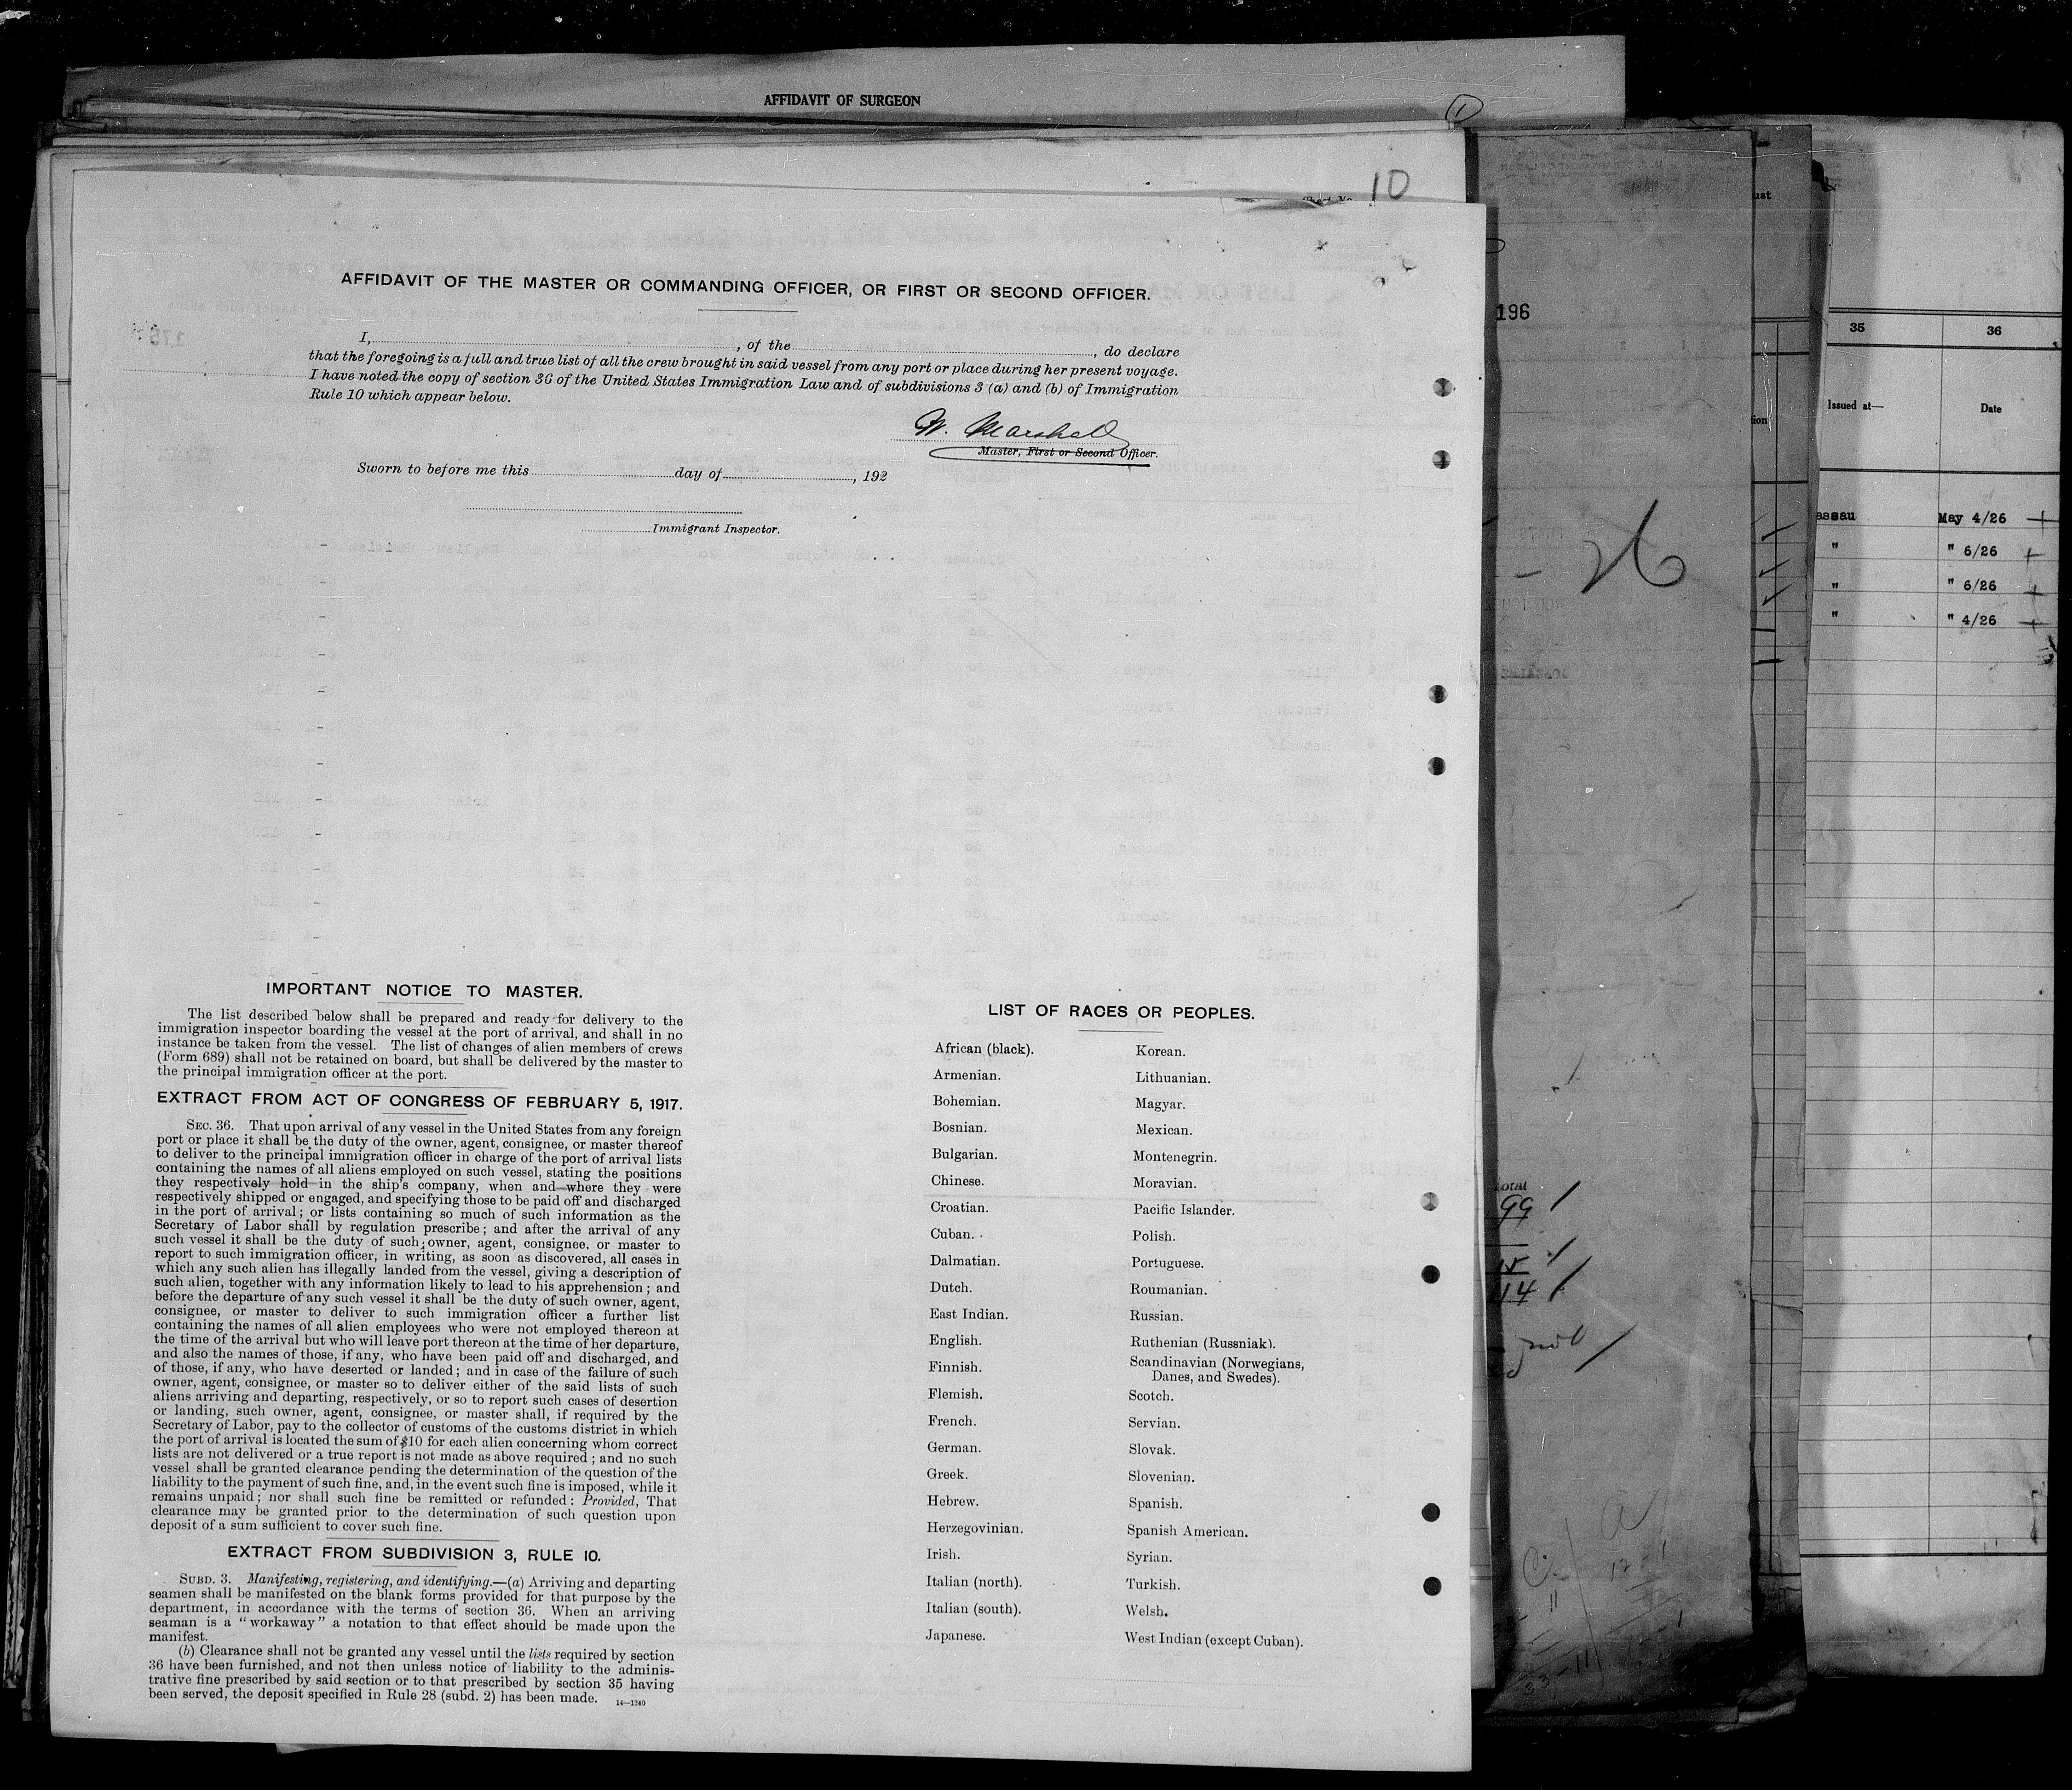 AFFIDAVIT OF SURGEON
10
AFFIDAVIT OF THE MASTER OR COMMANDING OFFICER, OR FIRST OR SECOND OFFICER.
I, , of the , do declare
that the foregoing is a full and true list of all the crew brought in said vessel from any port or place during her present voyage.
I have noted the copy of section 36 of the United States Immigration Law and of subdivisions 3 (a) and (b) of Immigration
Rule 10 which appear below.
W. Marshall
Master, First or Second Officer.
Sworn to before me this day of , 192
Immigrant Inspector.
IMPORTANT NOTICE TO MASTER.
The list described below shall be prepared and ready for delivery to the
immigration inspector boarding the vessel at the port of arrival, and shall in no
instance be taken from the vessel. The list of changes of alien members of crews
(Form 689) shall not be retained on board, but shall be delivered by the master to
the principal immigration officer at the port.
EXTRACT FROM ACT OF CONGRESS OF FEBRUARY 5, 1917.
SEC. 36. That upon arrival of any vessel in the United States from any foreign
port or place it shall be the duty of the owner, agent, consignee, or master thereof
to deliver to the principal immigration officer in charge of the port of arrival lists
containing the names of all aliens employed on such vessel, stating the positions
they respectively hold in the ship's company, when and where they were
respectively shipped or engaged, and specifying those to be paid off and discharged
in the port of arrival; or lists containing so much of such information as the
Secretary of Labor shall by regulation prescribe; and after the arrival of any
such vessel it shall be the duty of such owner, agent, consignee, or master to
report to such immigration officer, in writing, as soon as discovered, all cases in
which any such alien has illegally landed from the vessel, giving a description of
such alien, together with any information likely to lead to his apprehension; and
before the departure of any such vessel it shall be the duty of such owner, agent,
consignee, or master to deliver to such immigration officer a further list
containing the names of all alien employees who were not employed thereon at
the time of the arrival but who will leave port thereon at the time of her departure,
and also the names of those, if any, who have been paid off and discharged, and
of those, if any, who have deserted or landed; and in case of the failure of such
owner, agent, consignee, or master so to deliver either of the said lists of such
aliens arriving and departing, respectively, or so to report such cases of desertion
or landing, such owner, agent, consignee, or master shall, if required by the
Secretary of Labor, pay to the collector of customs of the customs district in which
the port of arrival is located the sum of $10 for each alien concerning whom correct
lists are not delivered or a true report is not made as above required; and no such
vessel shall be granted clearance pending the determination of the question of the
liability to the payment of such fine, and, in the event such fine is imposed, while it
remains unpaid; nor shall such fine be remitted or refunded: Provided, That
clearance may be granted prior to the determination of such question upon
deposit of a sum sufficient to cover such fine.
EXTRACT FROM SUBDIVISION 3, RULE 10.
SUBD. 3. Manifesting, registering, and identifying.—(a) Arriving and departing
seamen shall be manifested on the blank forms provided for that purpose by the
department, in accordance with the terms of section 36. When an arriving
seaman is a "workaway" a notation to that effect should be made upon the
manifest.
(b) Clearance shall not be granted any vessel until the lists required by section
36 have been furnished, and not then unless notice of liability to the adminis-
trative fine prescribed by said section or to that prescribed by section 35 having
been served, the deposit specified in Rule 28 (subd. 2) has been made. 14—1240
LIST OF RACES OR PEOPLES.
African (black).
Armenian.
Bohemian.
Bosnian.
Bulgarian.
Chinese.
Croatian.
Cuban.
Dalmatian.
Dutch.
East Indian.
English.
Finnish.
Flemish.
French.
German.
Greek.
Hebrew.
Herzegovinian.
Irish.
Italian (north).
Italian (south).
Japanese.
Korean.
Lithuanian.
Magyar.
Mexican.
Montenegrin.
Moravian.
Pacific Islander.
Polish.
Portuguese.
Roumanian.
Russian.
Ruthenian (Russniak).
Scandinavian (Norwegians,
Danes, and Swedes).
Scotch.
Servian.
Slovak.
Slovenian.
Spanish.
Spanish American.
Syrian.
Turkish.
Welsh.
West Indian (except Cuban).
196
26
99
14
35 36
Issued at— Date
assau May 4/26
" " 6/26
" " 6/26
" " 4/26